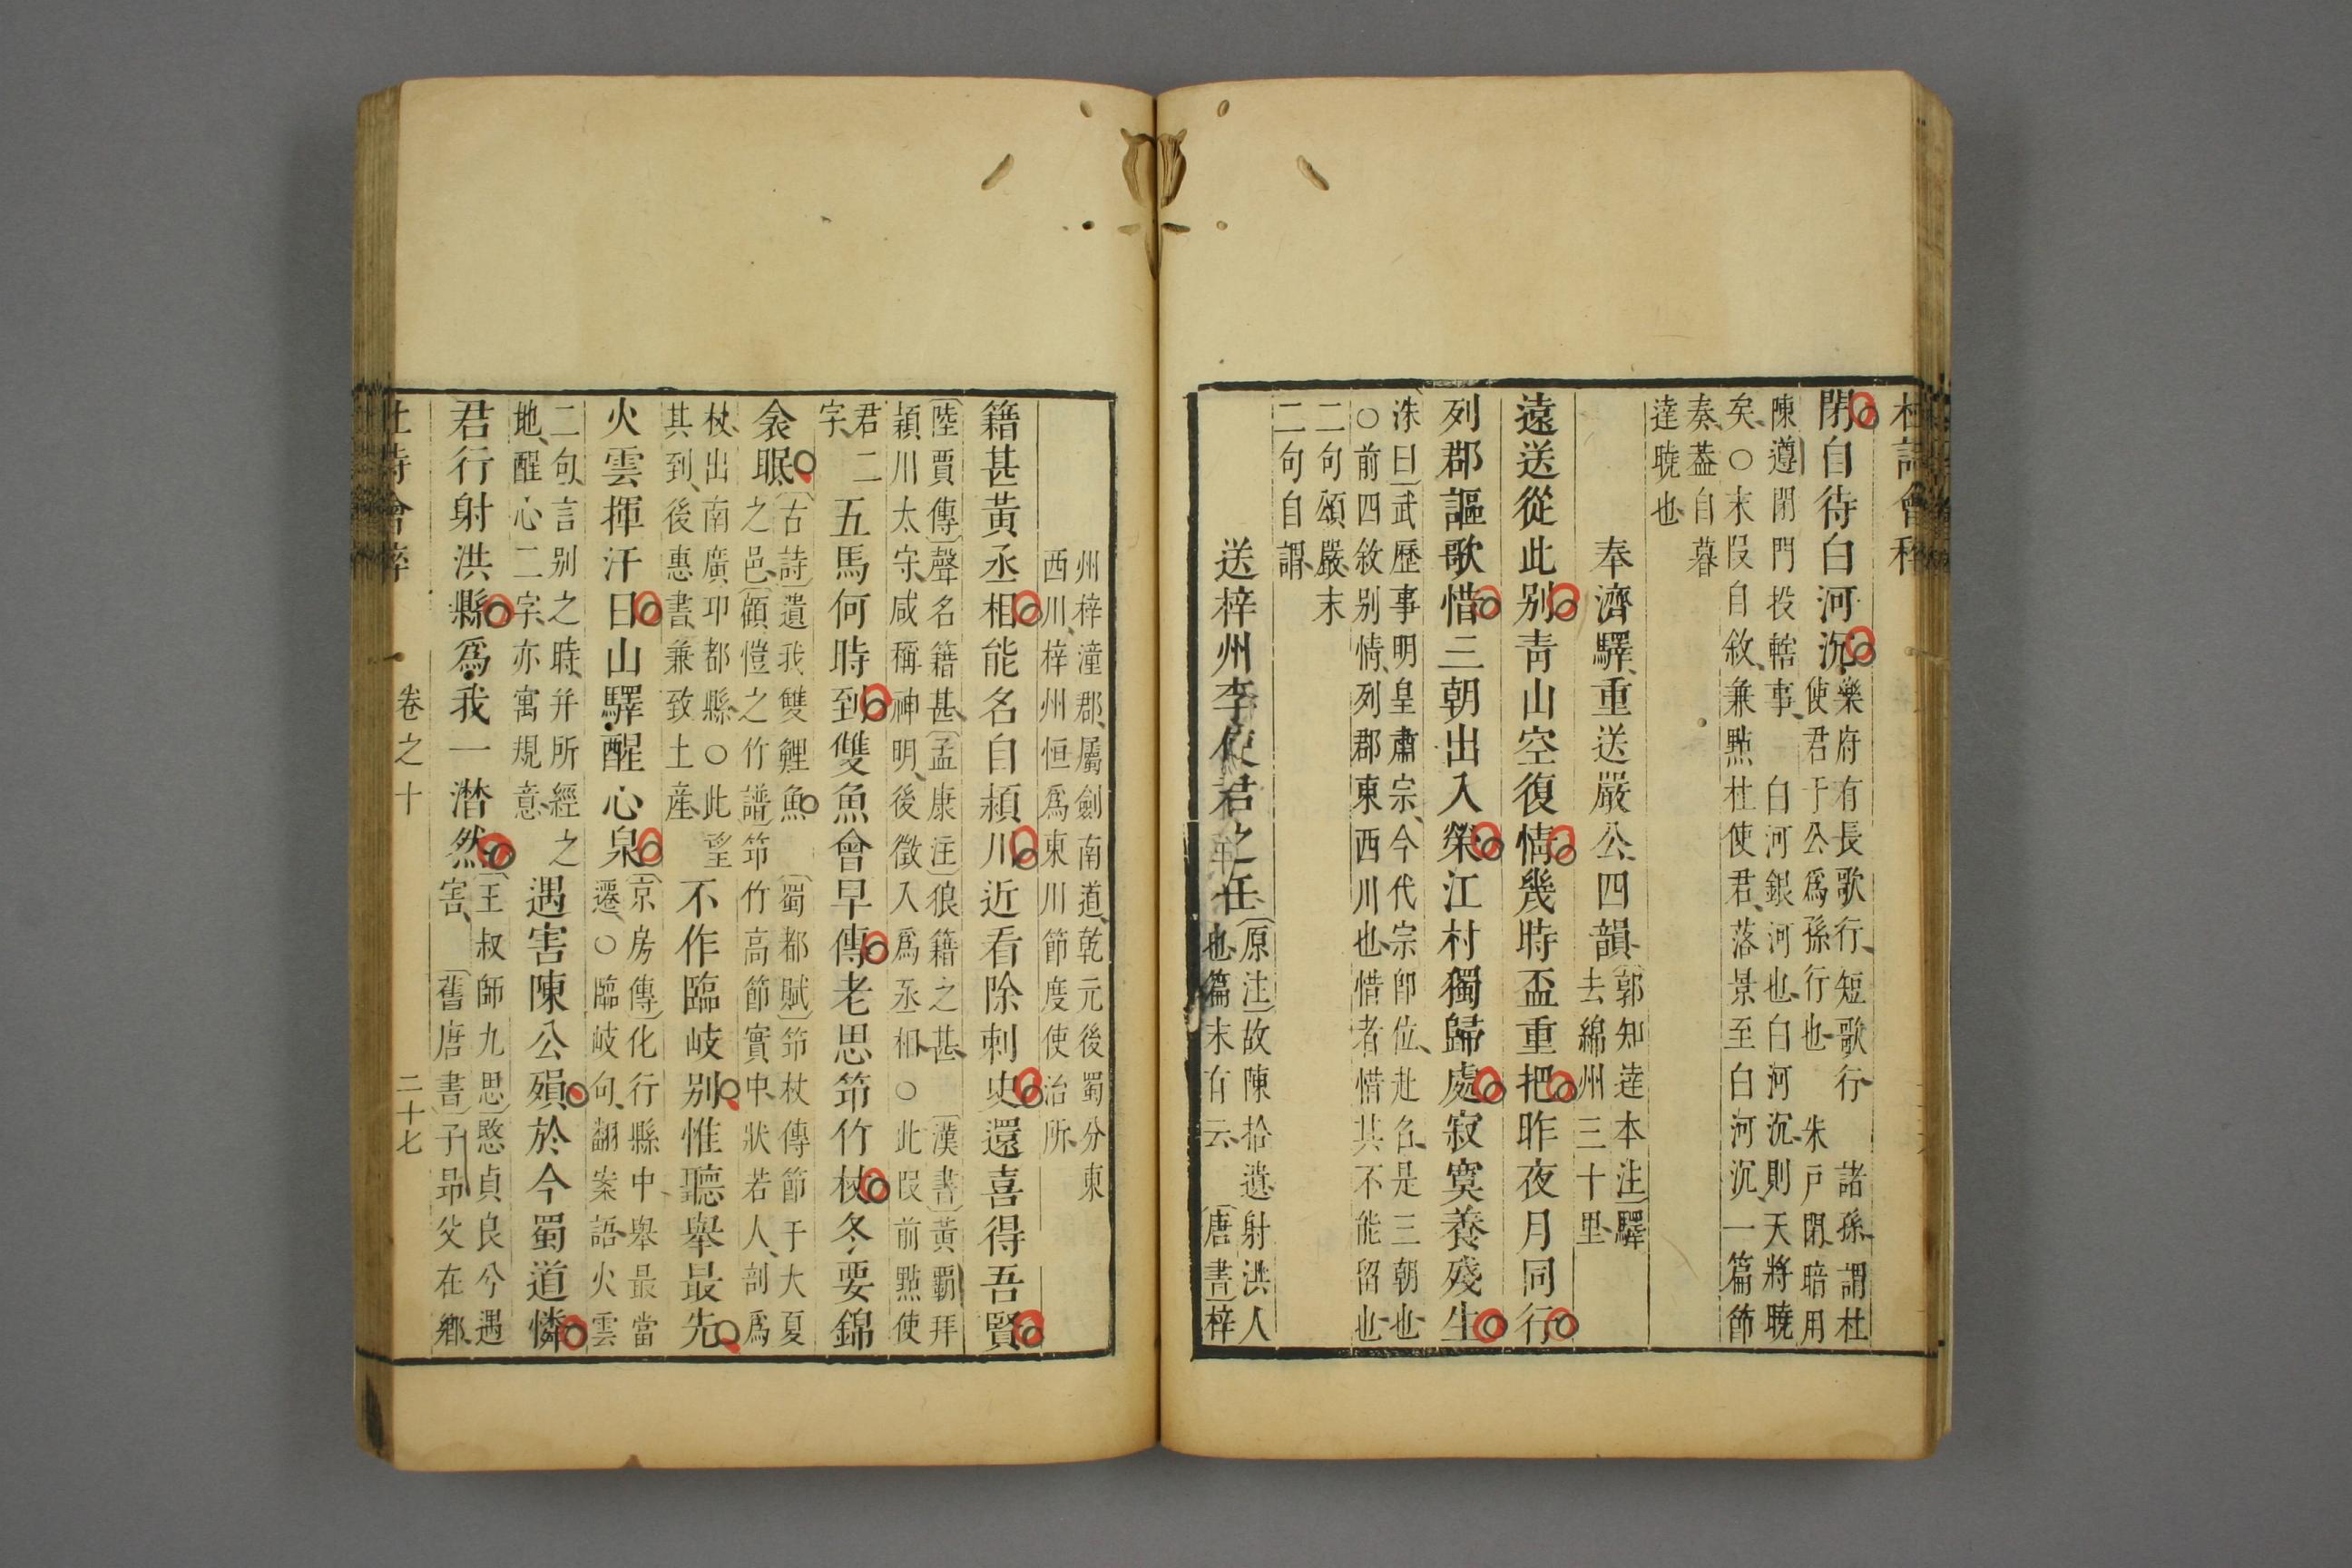 杜詩會稡
閉自待白河沉
樂府有長歌行短歌行 諸孫謂杜
使君于公爲孫行也 朱戶閉暗用
陳遵閉門投轄事 白河銀河也白河沉則天將曉
矣○末段自敘兼點杜使君落景至白河沉一篇節
奏葢自暮
達曉也
奉濟驛重送嚴公四韻
郭知達本注驛
去綿州三十里
遠送從此别青山空復情幾時盃重把昨夜月同行
列郡謳歌惜三朝出入榮江村獨歸處寂寞養殘生
洙曰武歷事明皇肅宗今代宗卽位赴召是三朝也
○前四敘别情列郡東西川也惜者惜其不能留也
二句頌嚴末
二句自謂
送梓州李使君之任
原注故陳拾遺射洪人
也篇末有云 唐書梓
州梓潼郡屬劍南道乾元後蜀分東
西川梓州恒爲東川節度使治所
籍甚黃丞相能名自頴川近看除刺史還喜得吾賢
陸賈傳聲名籍甚孟康注狼籍之甚 漢書黃覇拜
頴川太守咸稱神明後徵入爲丞相○此段前點使
君二
字
五馬何時到雙魚會早傳老思筇竹杖冬要錦
衾眠
古詩遺我雙鯉魚 蜀都賦筇杖傳節于大夏
之邑顧愷之竹譜筇竹高節實中狀若人剖爲
杖出南廣卭都縣○此望
其到後惠書兼致土産
不作臨岐别惟聽舉最先
火雲揮汗日山驛醒心泉
京房傳化行縣中舉最當
遷○臨岐句翻案語火雲
二句言别之時并所經之
地醒心二字亦寓規意
遇害陳公殞於今蜀道憐
君行射洪縣爲我一潸然
王叔師九思愍貞良兮遇
害 舊唐書子昂父在鄉
杜詩會稡
卷之十
二十七